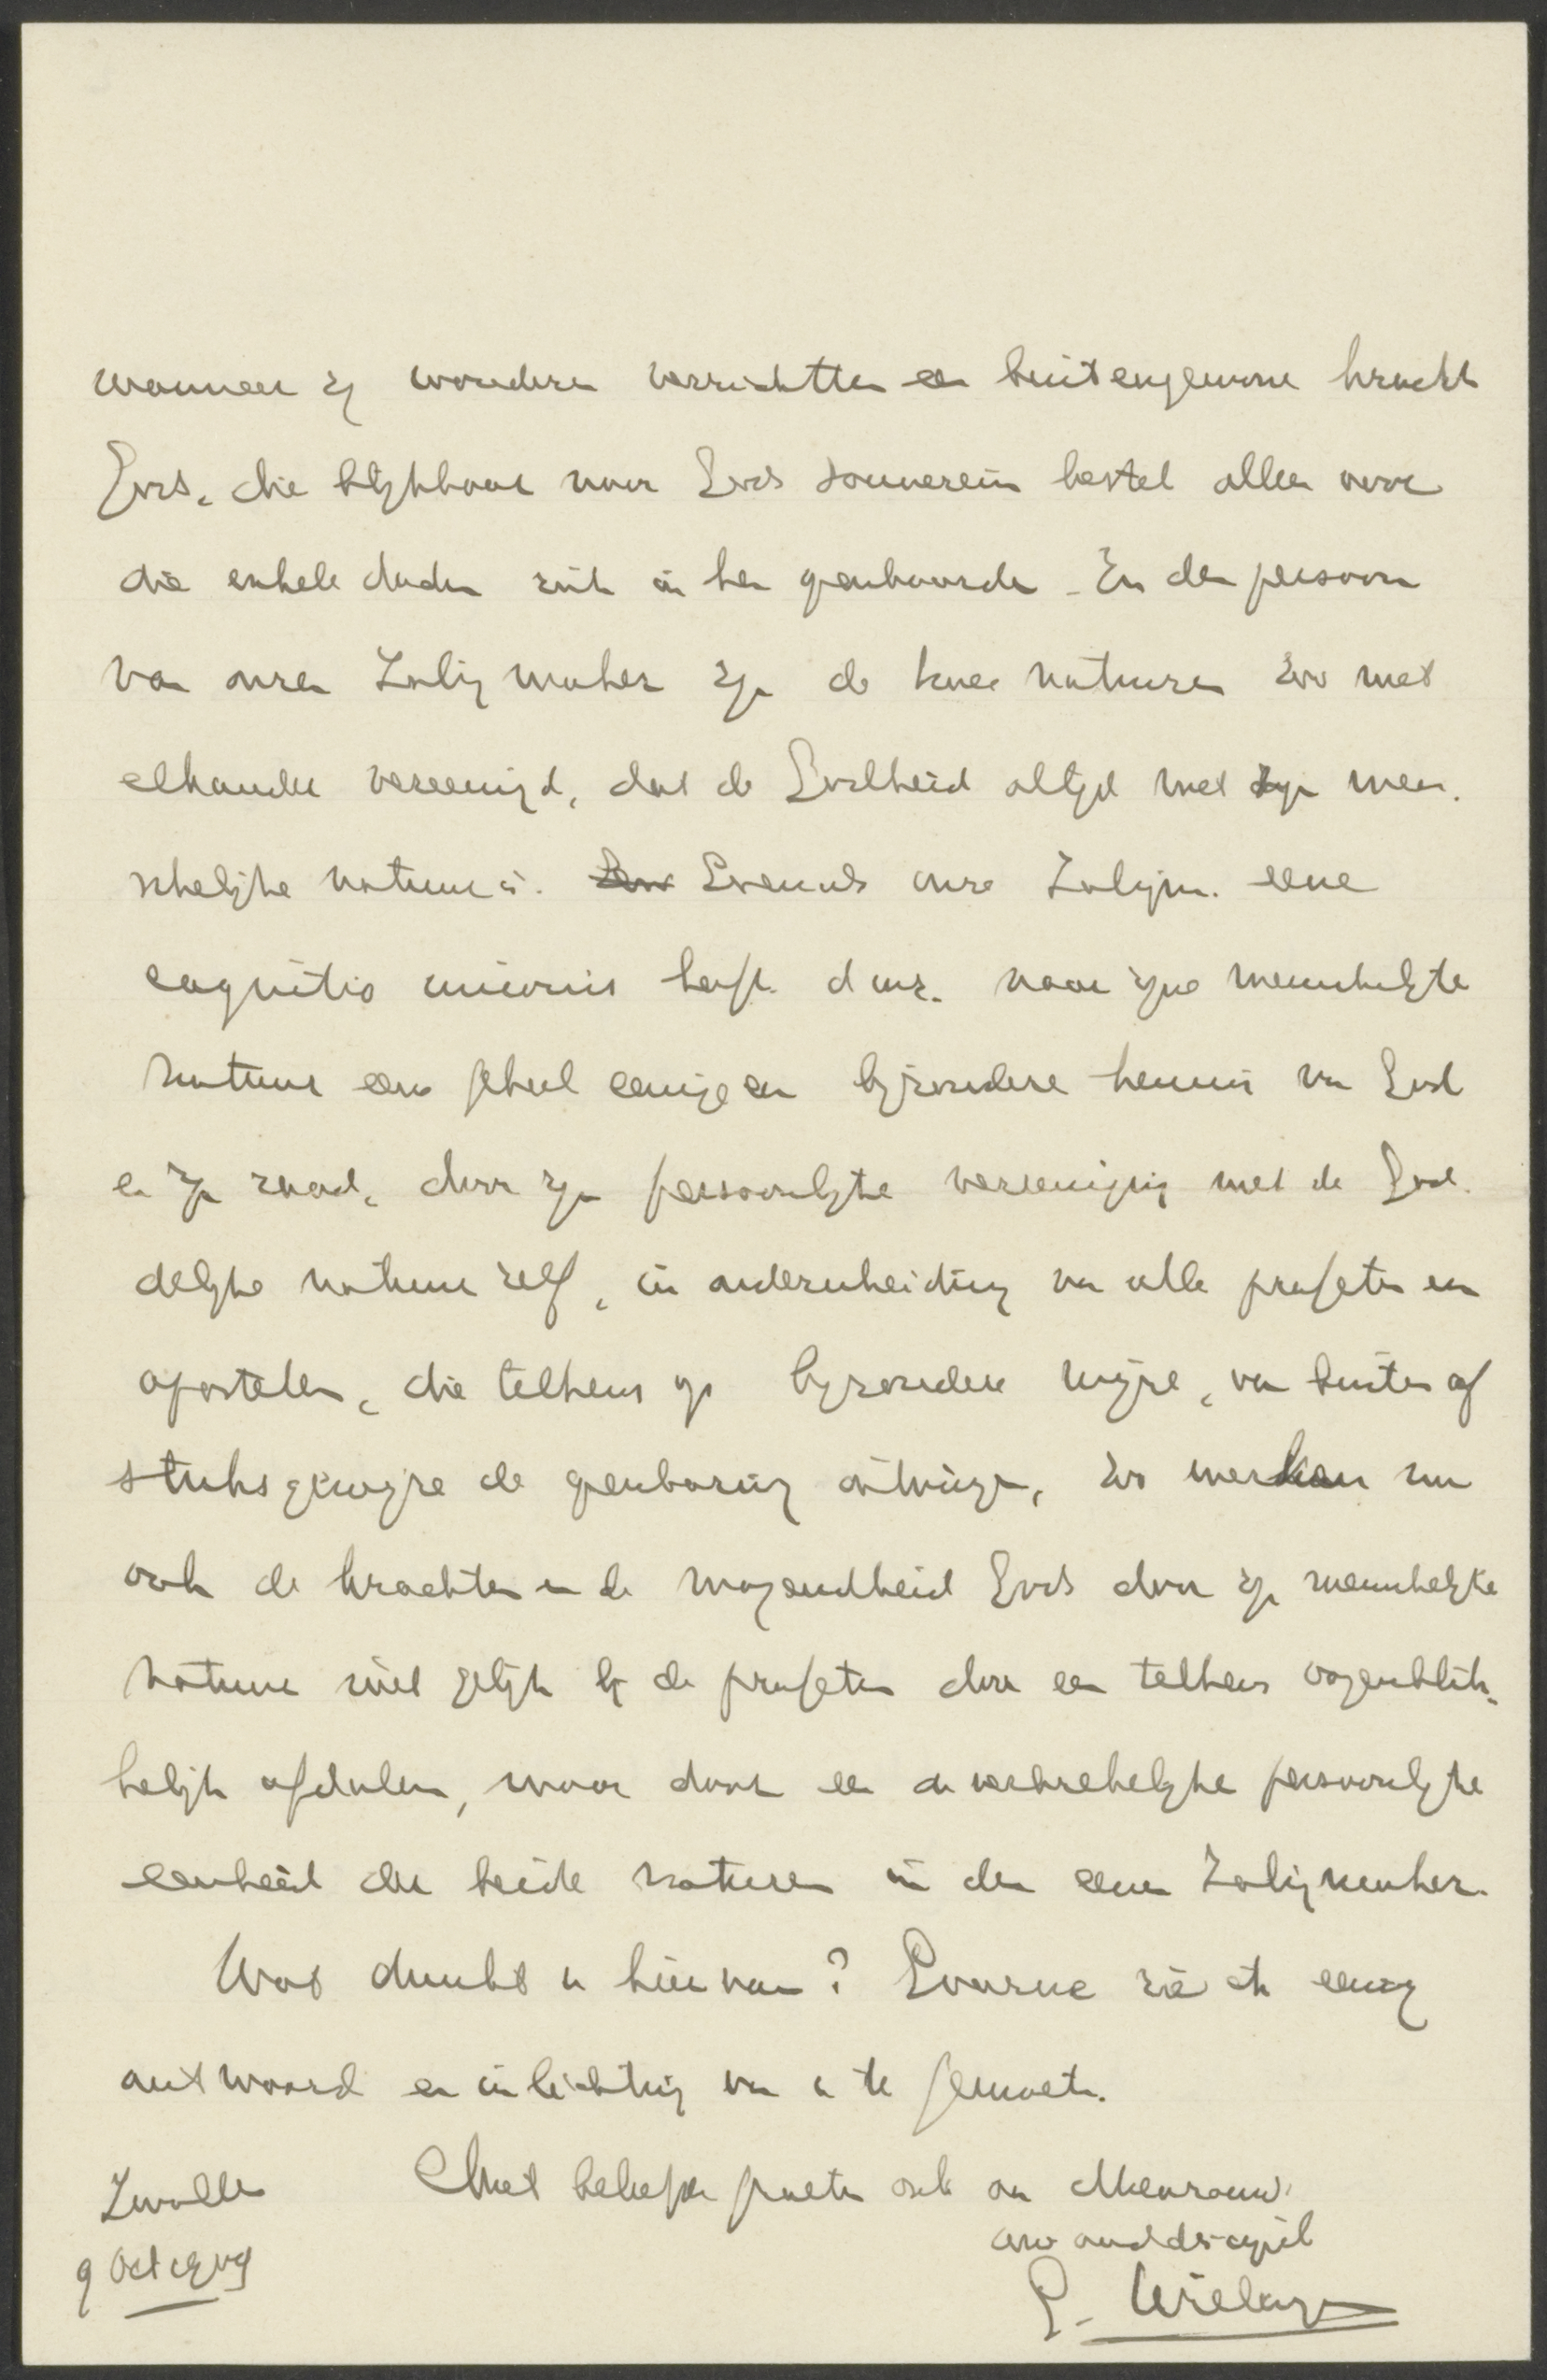 wanneer zij wonderen verrichtten een buitengewone kracht
Gods, die blijkbaar naar Gods souverein bestel alleen voor
die enkele daden zich in hen openbaarde. In den persoon
van onzen Zaligmaker zijn de twee naturen zoo met
elkander vereenigd, dat de Godheid altijd met zijn men-
schelijke natuur is. Evenals onze Zaligm. eene
cognitio unionis heeft d.w.z. naar zijne menschelijke
natuur een geheel eenige en bijzondere kennis van God
en zijn raad, door zijn persoonlijke vereeniging met de God-
delijke natuur zelf, in onderscheiding van alle profeten en
apostelen, die telkens op bijzondere wijze, van buiten af
stuksgewijze de openbaring ontvingen, zoo werken nu
ook de krachten en de mogendheid Gods door zijn menschelijke
natuur niet gelijk bij de profeten door een telkens oogenblik-
kelijk afdalen, maar door een onverbrekelijke persoonlijke
eenheid der beide naturen in den eenen Zaligmaker.
Wat dunkt u hiervan? Gaarne zie ik eenig
antwoord en inlichting van u te gemoet.
Met beleefde groeten ook aan Mevrouw,
Zwolle
uw oud discipel
9 Oct 1909
G. Wielenga